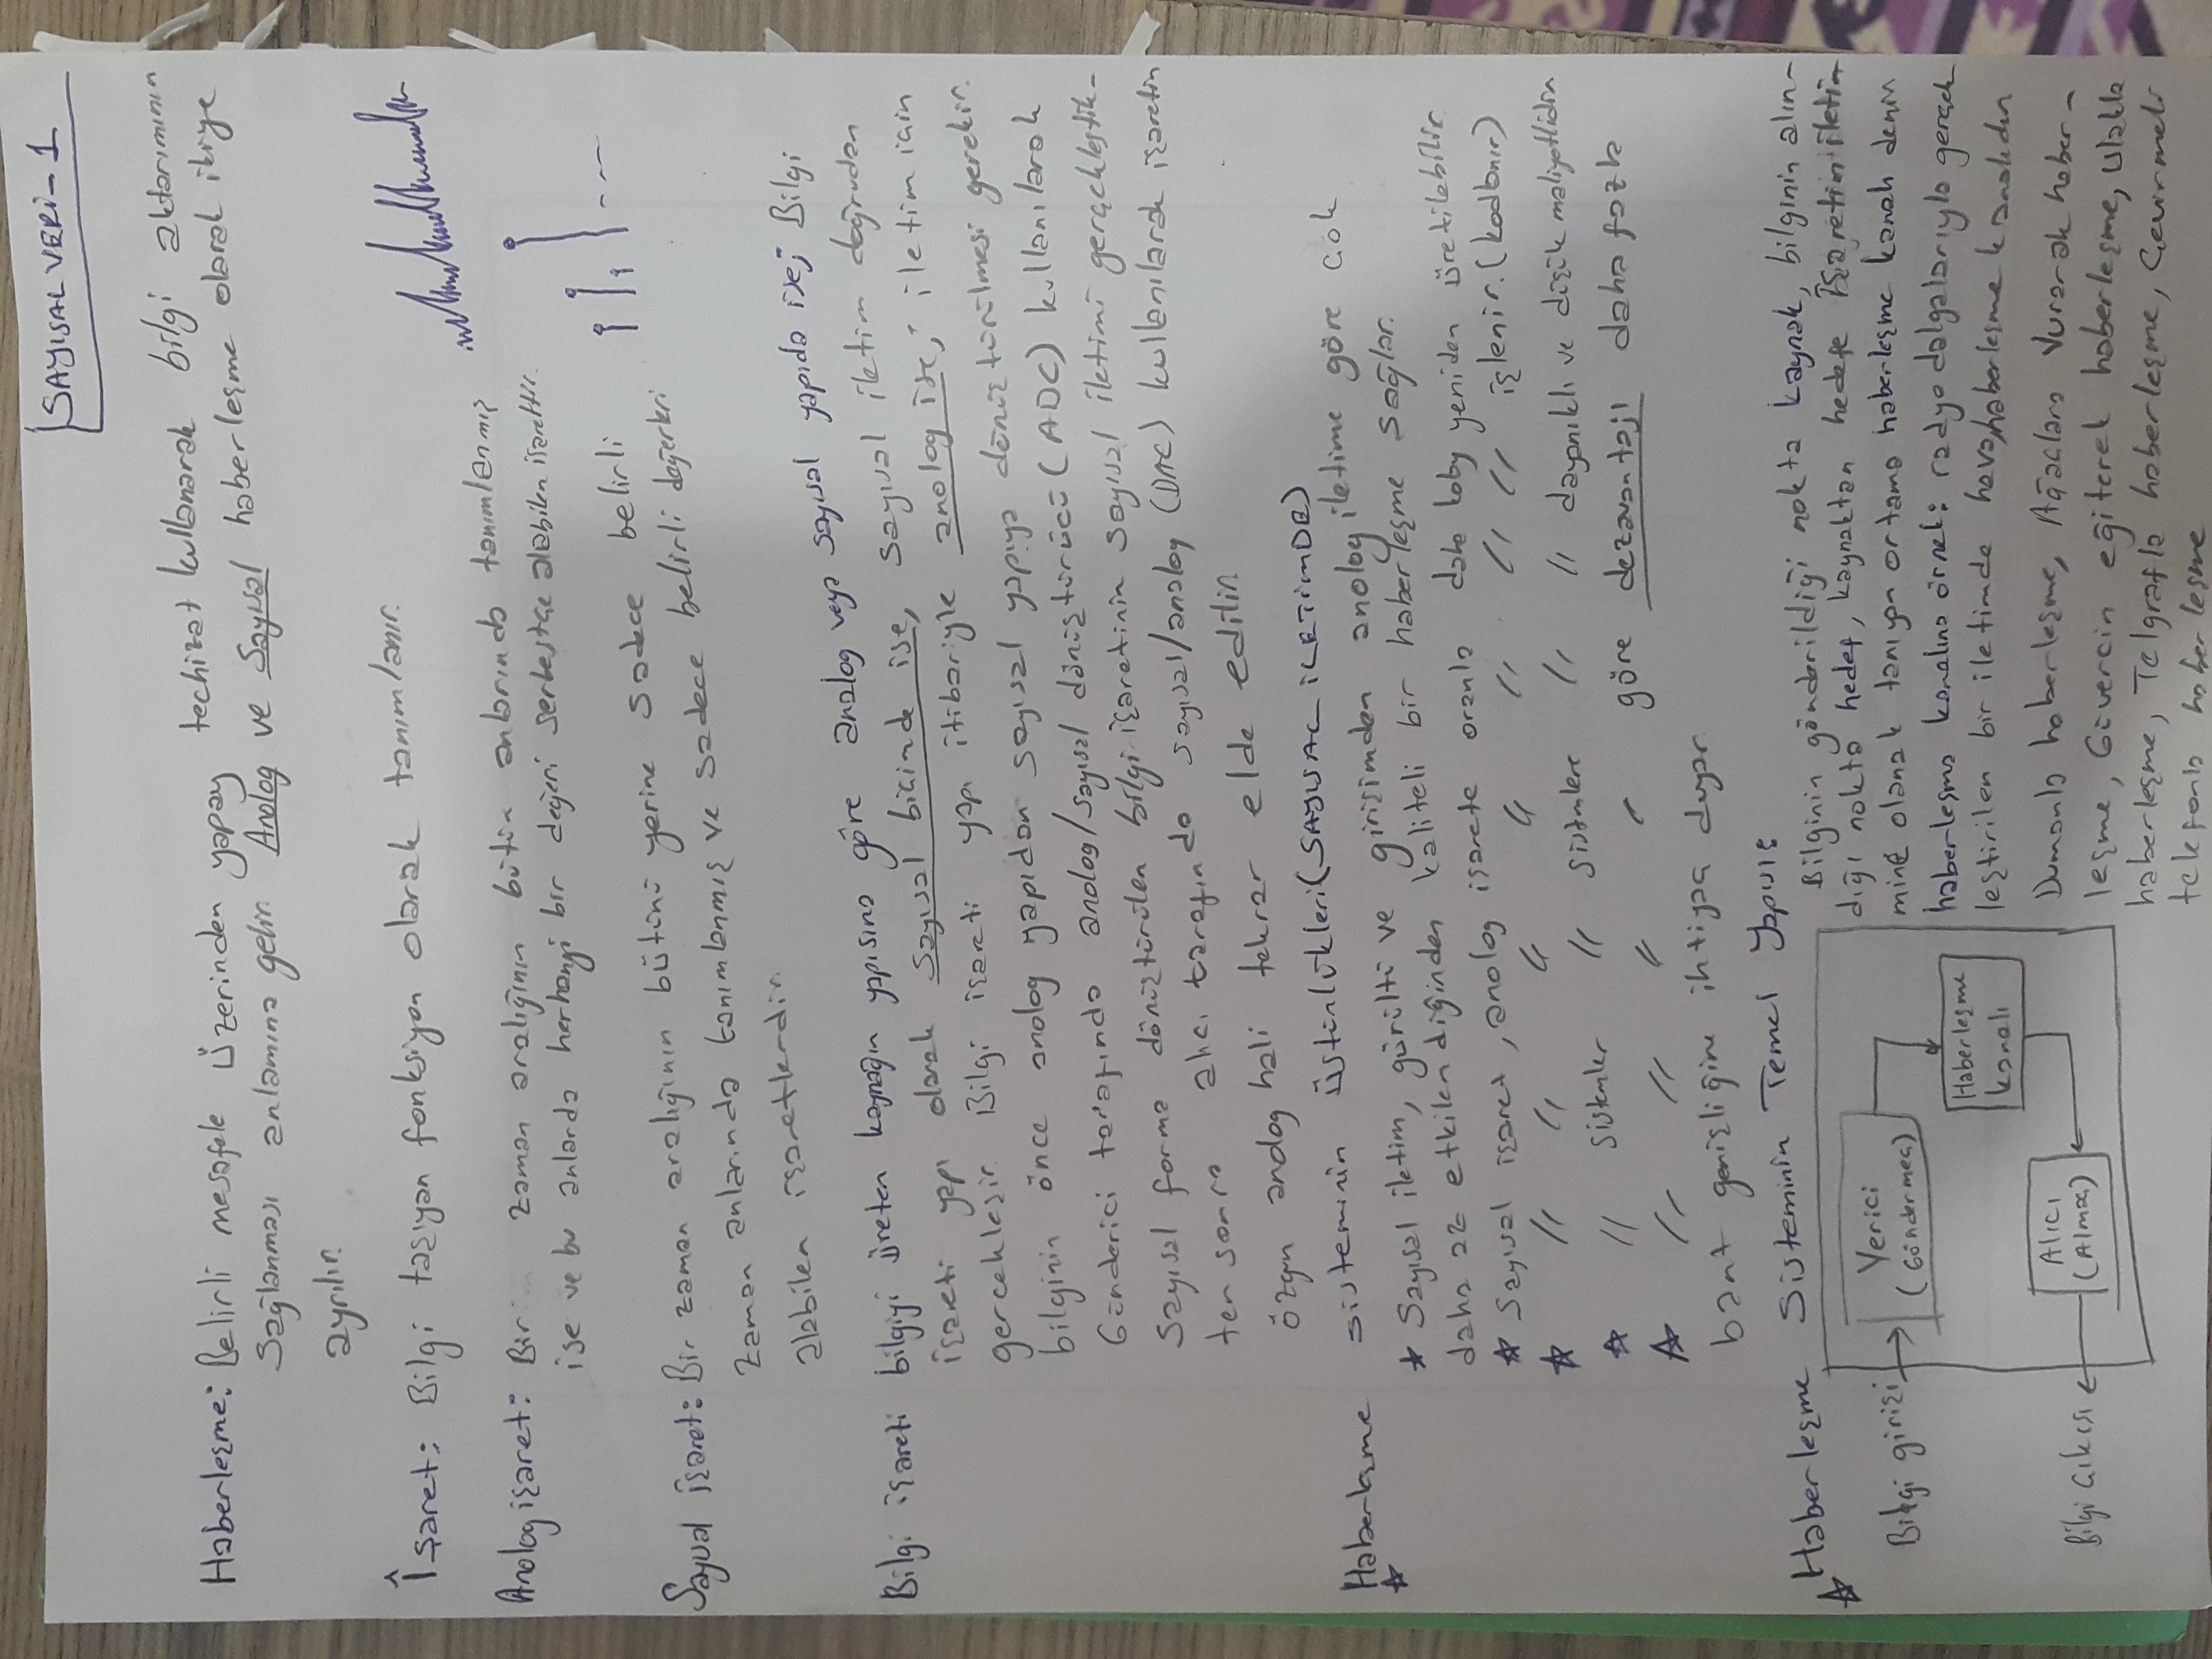 SAYISAL VERİ - 1
Haberleşme: Belirli mesafele üzerinden yapay techizat kullanarak bilgi aktarımının
sağlanması anlamına gelir. Anolog ve Sayısal haberleşme olarak ikiye
ayrılır.
İşaret: Bilgi taşıyan fonksiyon olarak tanımlanır.
Anolog işaret: Bir zaman aralığının bütün anlarında tanımlanmış
ise ve bu anlarda herhangi bir değeri serbestçe alabilen işarettir.
Sayısal işaret: Bir zaman aralığının bütünü yerine sadece belirli
zaman anlarında tanımlanmış ve sadece belirli değerleri
alabilen işaretlerdir.
Bilgi işareti bilgiyi üreten kaynağın yapısına göre analog veya sayısal yapıda ise; Bilgi
işareti yapı olarak sayısal biçimde ise, sayısal iletim doğrudan
gerçekleşir. Bilgi işareti yapı itibariyle anolog ise; iletim için
bilginin önce anolog yapıdan sayısal yapıya dönüştürülmesi gerekir.
Gönderici tarafında anolog/sayısal dönüştürücü (ADC) kullanılarak
sayısal forma dönüştürülen bilgi işaretinin sayısal iletimi gerçekleştik-
ten sonra alıcı tarafında sayısal/analog (DAC) kullanılarak işaretin
özgün analog hali tekrar elde edilir.
Haberleşme sisteminin Üstünlükleri (SAYISAL İLETİMDE)
★ Sayısal iletim, gürültü ve girişimden anolog iletime göre çok
daha az etkilendiğinden kaliteli bir haberleşme sağlar.
★ Sayısal işaret, anolog işarete oranla daha kolay yeniden üretilebilir
★ // // // // // // // işlenir. (kodlanır)
★ // Sistemler // sistemlere // // dayanıklı ve düşük maliyetlidir
★ // // // // göre dezavantajı daha fazla
bant genişliğine ihtiyaç duyar.
★ Haberleşme Sisteminin Temel Yapısı:
Bilgi girişi
Verici
(Göndermeç)
Haberleşme
kanalı
Alıcı
(Almaç)
Bilgi çıkışı
Bilginin gönderildiği nokta kaynak, bilginin alın-
dığı nokta hedef, kaynaktan hedefe işaretin iletim
mine olanak tanıyan ortama haberleşme kanalı denir.
haberleşme kanalına örnek: radyo dalgalarıyla gerçek
leştirilen bir iletimde hava, haberleşme kanalıdır
Dumanla haberleşme, Ağaçlara Vurarak haber-
leşme, Güvercin eğiterek haberleşme, ulakla
haberleşme, Telgrafla haberleşme, Çevirmeli
telefonla haberleşme